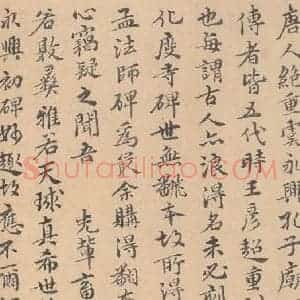 唐人絶重雲永興孔子廟
傳者皆五代時王彦超重
也每謂古人亦浪得名未必刻
化度寺碑世無翻本故所得
孟法師碑為遠余購得翻本
心竊疑之聞吾 先輩畜
若敦彜雅若天球真希世
永興初碑妙趣故應不爾
Shufaziliao.com